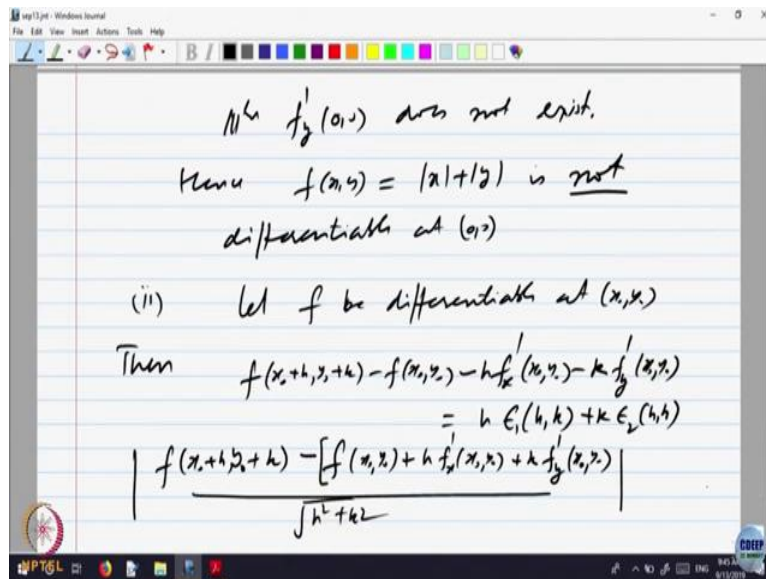 sep13.jnt - Windows Journal
File Edit View Insert Actions Tools Help
B I
|||ly f'_y (0,0) does not exist.
Hence f(x,y) = |x|+|y| is not
differentiable at (0,0)
(ii) Let f be differentiable at (x₀,y₀)
Then f(x₀+h, y₀+k) - f(x₀,y₀) - h f'_x (x₀,y₀) - k f'_y (x₀,y₀)
= h ϵ₁(h,k) + k ϵ₂(h,k)
| f(x₀+h, y₀+k) - [f(x₀,y₀) + h f'_x (x₀,y₀) + k f'_y (x₀,y₀) |
√h² + k²
NPTEL
ENG
9/13/2019
CDEEP